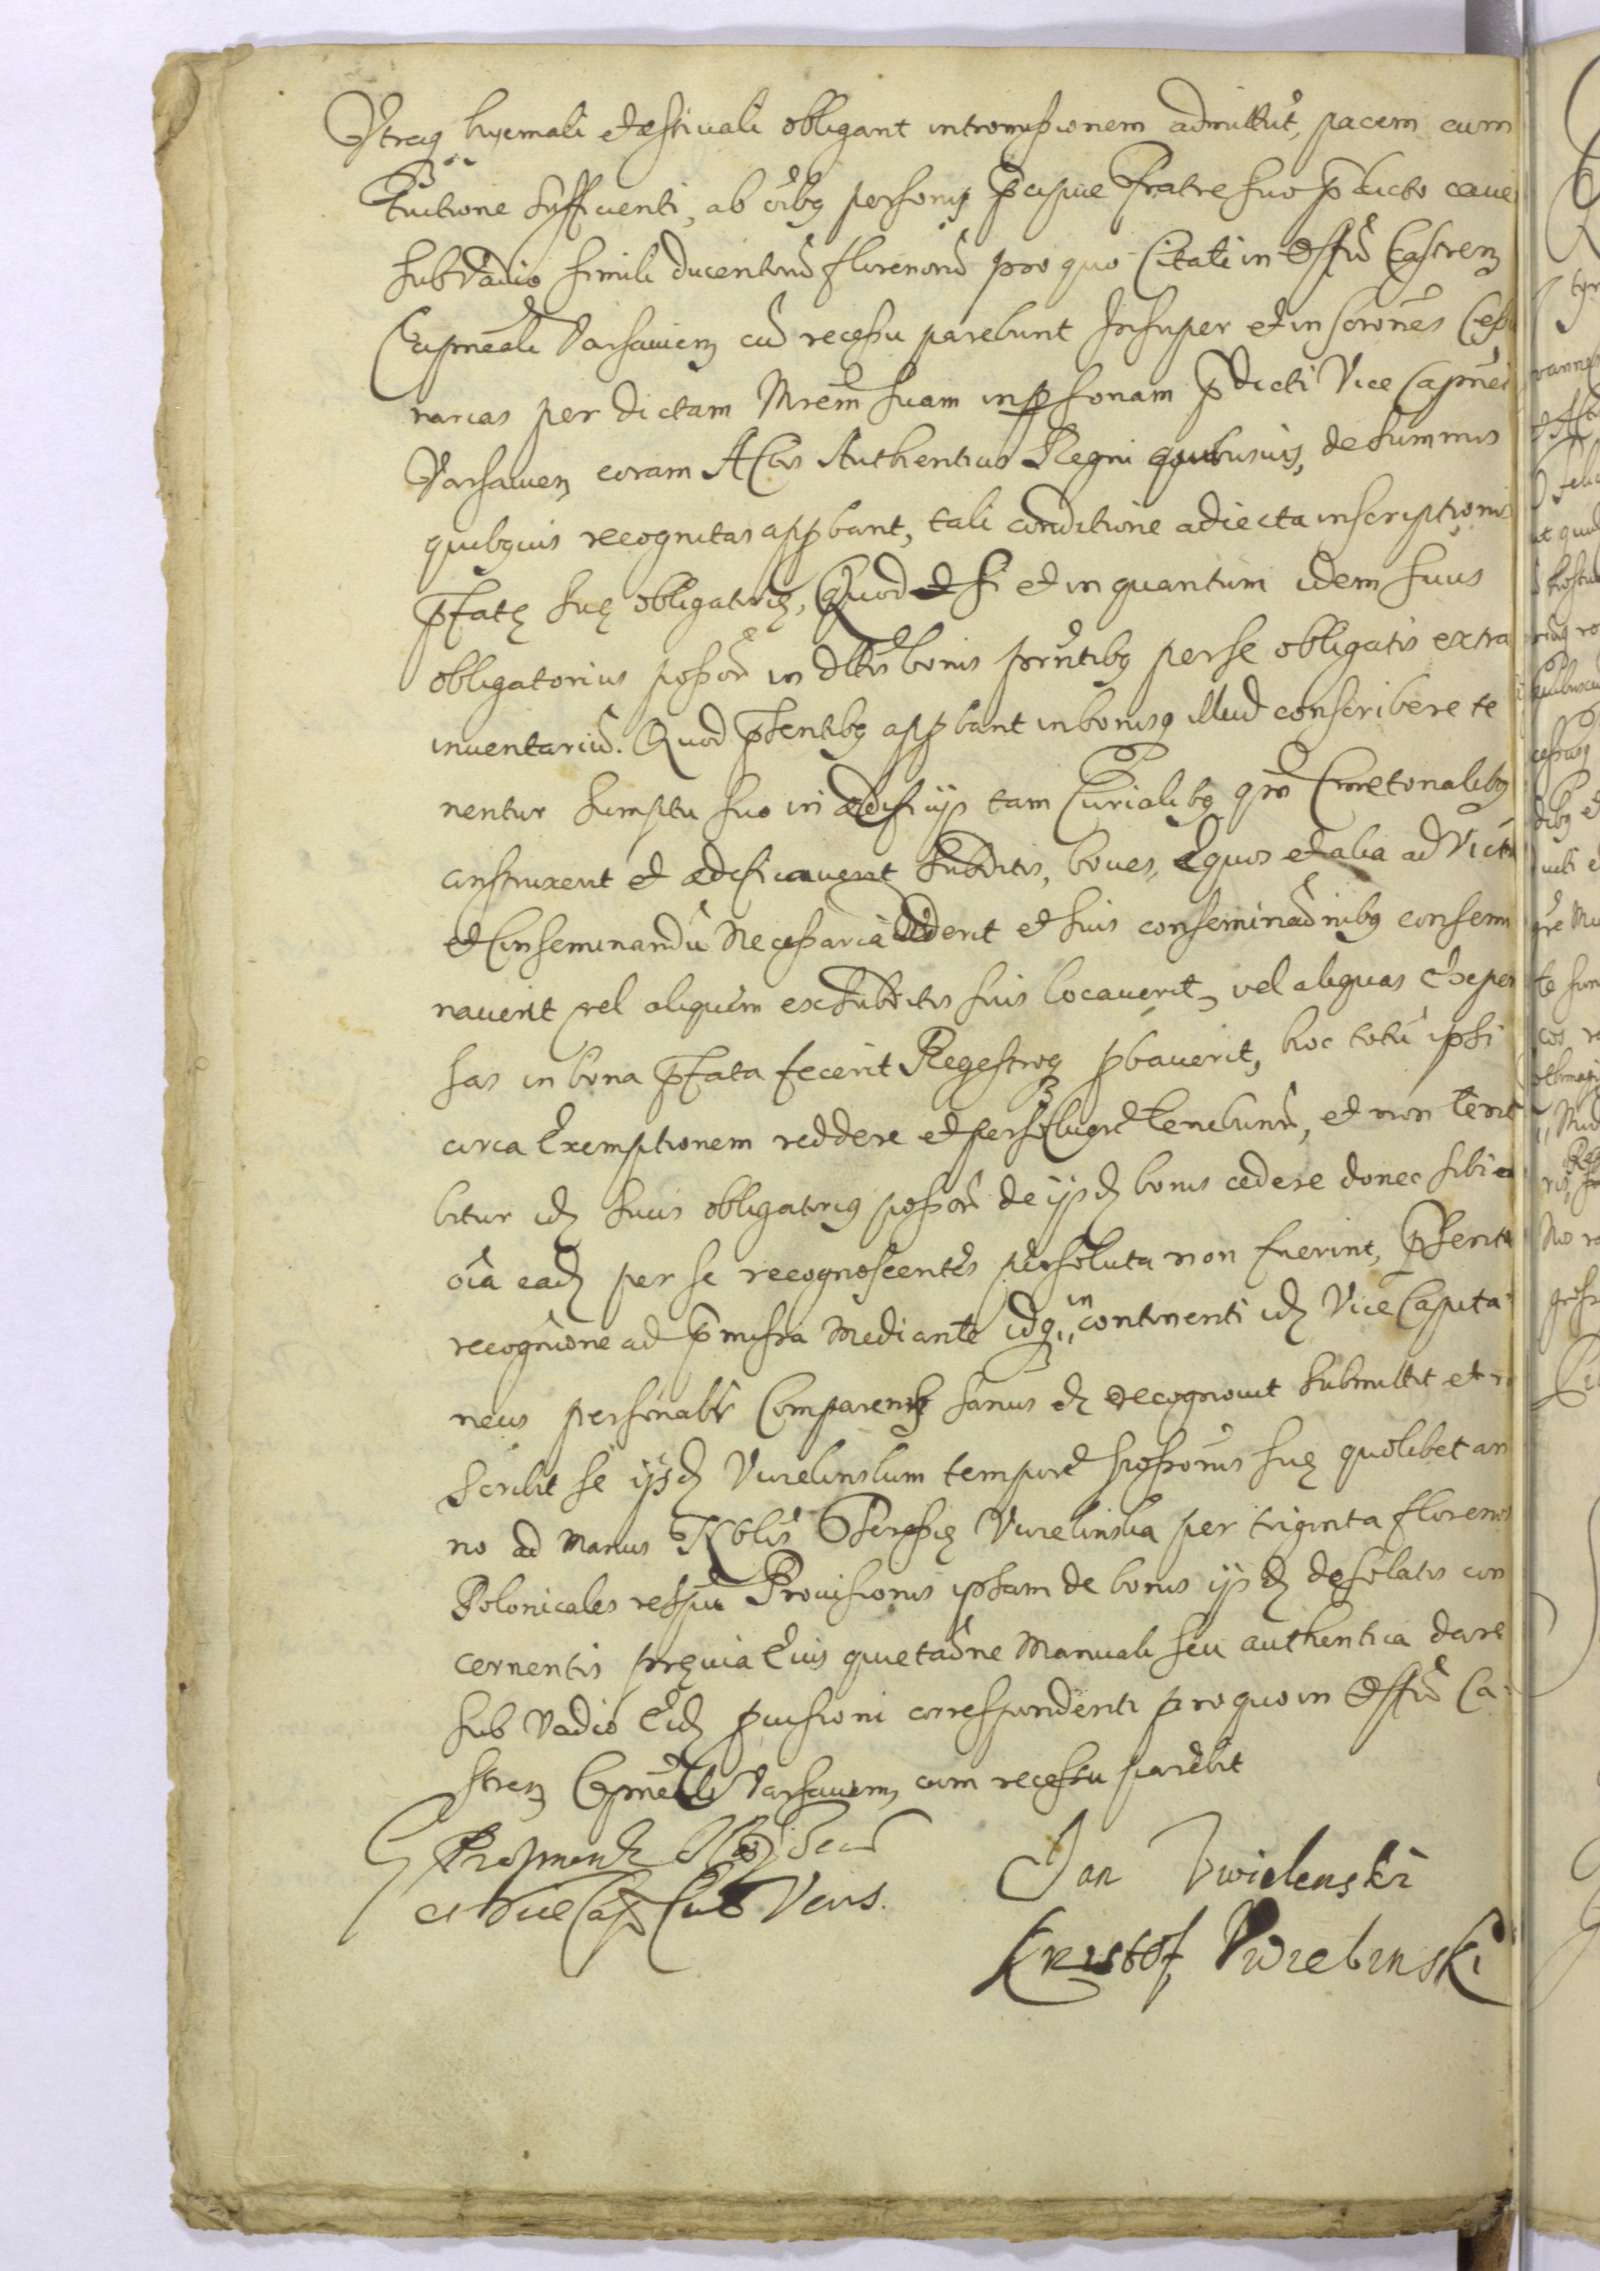 Vtraq hyemali et æstiuali obligant intromissionem admittut, pacem cum
tuitione sufficienti, ab oibq personis pcipue Fratre suo pdicto caue
sub Vadio simili ducentorũ florenorũ pro quo Citati in Offũ Castren
Capineali Varsauien cũ recessu parebunt Insuper et inscrones
narias per dictam Mrem suam in psonam pdicti Vice Capnei
Varsauien coram Actis Authenticis Regni quibusuis, de summis
quibquis recognitas appbant, tali conditione adiecta inscriptioni
pfatę suę obligatorię, Quod et si et in quantum idem suus
obligatorius possor in dictis bonis prntibq per se obligatis extra
inuentariũ. Quod psentibq appbant in bonisq illud conscribere te
nentur sumptu suo in ædificijs tam Curialibq qm Cmetonalibq
construxerit et ædificauerit Subditis, boues, Equos et alia ad Victũ
et Conseminandũ Necessaria dederit et suis conseminadnibq consemi
nauerit vel aliquem ex Subditis suis locauerit, vel aliquas Expen
sas in bona pfata fecerit Regestroq pbauerit, hoc totũ ipsi
circa Exemptionem reddere et persoluere tenebunr, et non tene
bitur idẽ suus obligatoriq possor de ijsdẽ bonis cedere donec sibi ea
oia eadẽ per se recognoscentes persoluta non fuerint, psenti
recognione ad pmissa Mediante idq in continenti idẽ Vice Capita
neus personalr Comparens sanus etc recognouit submittit et in
scribit se ijsdẽ Vwielinskim tempore possonis suę quolibet an
no ad manus Nblis Vwielinska per triginta florenos
Polonicales respu Prouisionis ipsam de bonis ijsdẽ desolatis con
cernentis pręuia Eius quietadne Manuali seu authentica dare
sub Vadio Eidẽ puisioni correspondenti pro quo in Offũ Ca
stren Capneali Varsauien cum recessu parebit
et Vice Cap Vars.
Jan Vwielenski
Krzistof Vwielinski